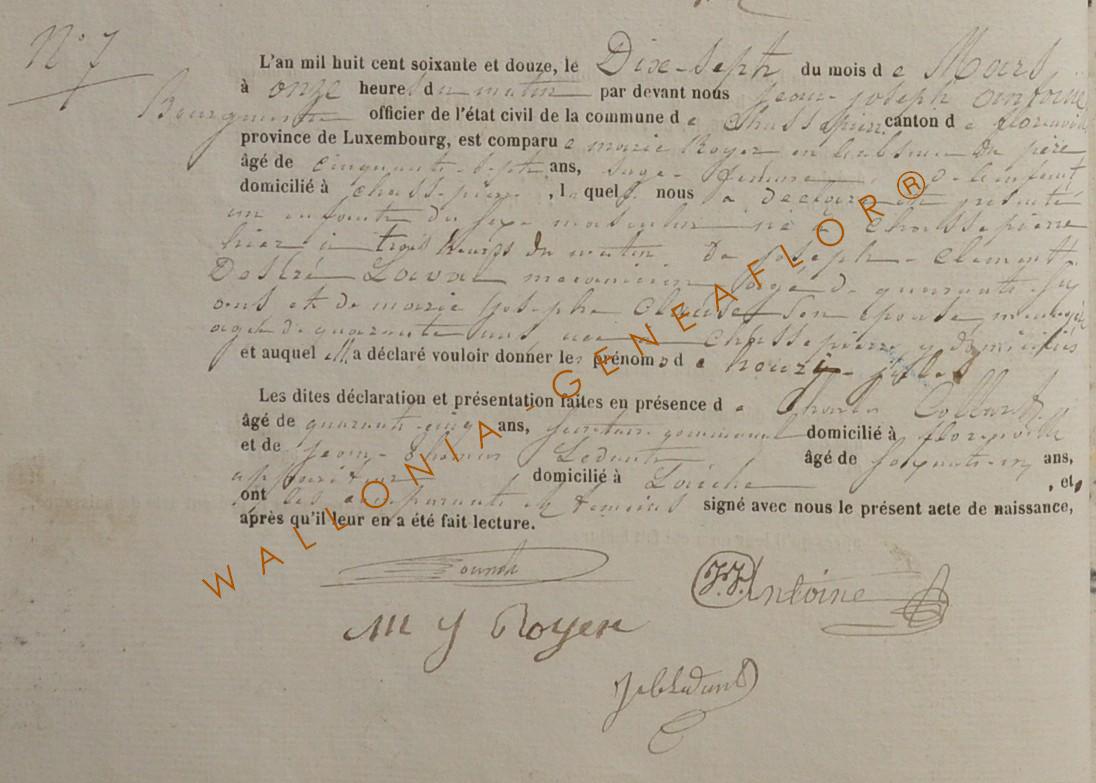 N° 7
L'an mil huit cent soixante et douze, le Dix-Sept du mois de Mars
à onze heures du matin par devant nous Jean-Joseph Antoine
Bourgmestre officier de l'état civil de la commune de Chassepierre canton de florenville
province de Luxembourg, est comparue marie Royer en l'absence du père
âgé de cinquante-sept ans, sage-femme
domicilié à Chassepierre, l quel nous a déclaré et présenté
un enfant du sexe masculin né à Chassepierre
hier à trois heures du matin de Joseph-Clement
Désiré Louval mecanicien âgé de quarante-six
ans et de marie Josephe son épouse ménagère
agée de quarante ans née Chassepierre y domiciliés
et auquel ell a déclaré vouloir donner les prénoms de jules
Les dites déclaration et présentation faites en présence de Charles Collard
âgé de quarante-cinq ans, secrétaire communal domicilié à florenville
et de Jean- âgé de soixante-six ans,
domicilié à Laiche, et,
ont les comparants et témoins signé avec nous le présent acte de naissance,
après qu'il leur en a été fait lecture.
J.J. Antoine
M J Royer
WALLONIA-GENEAFLOR®